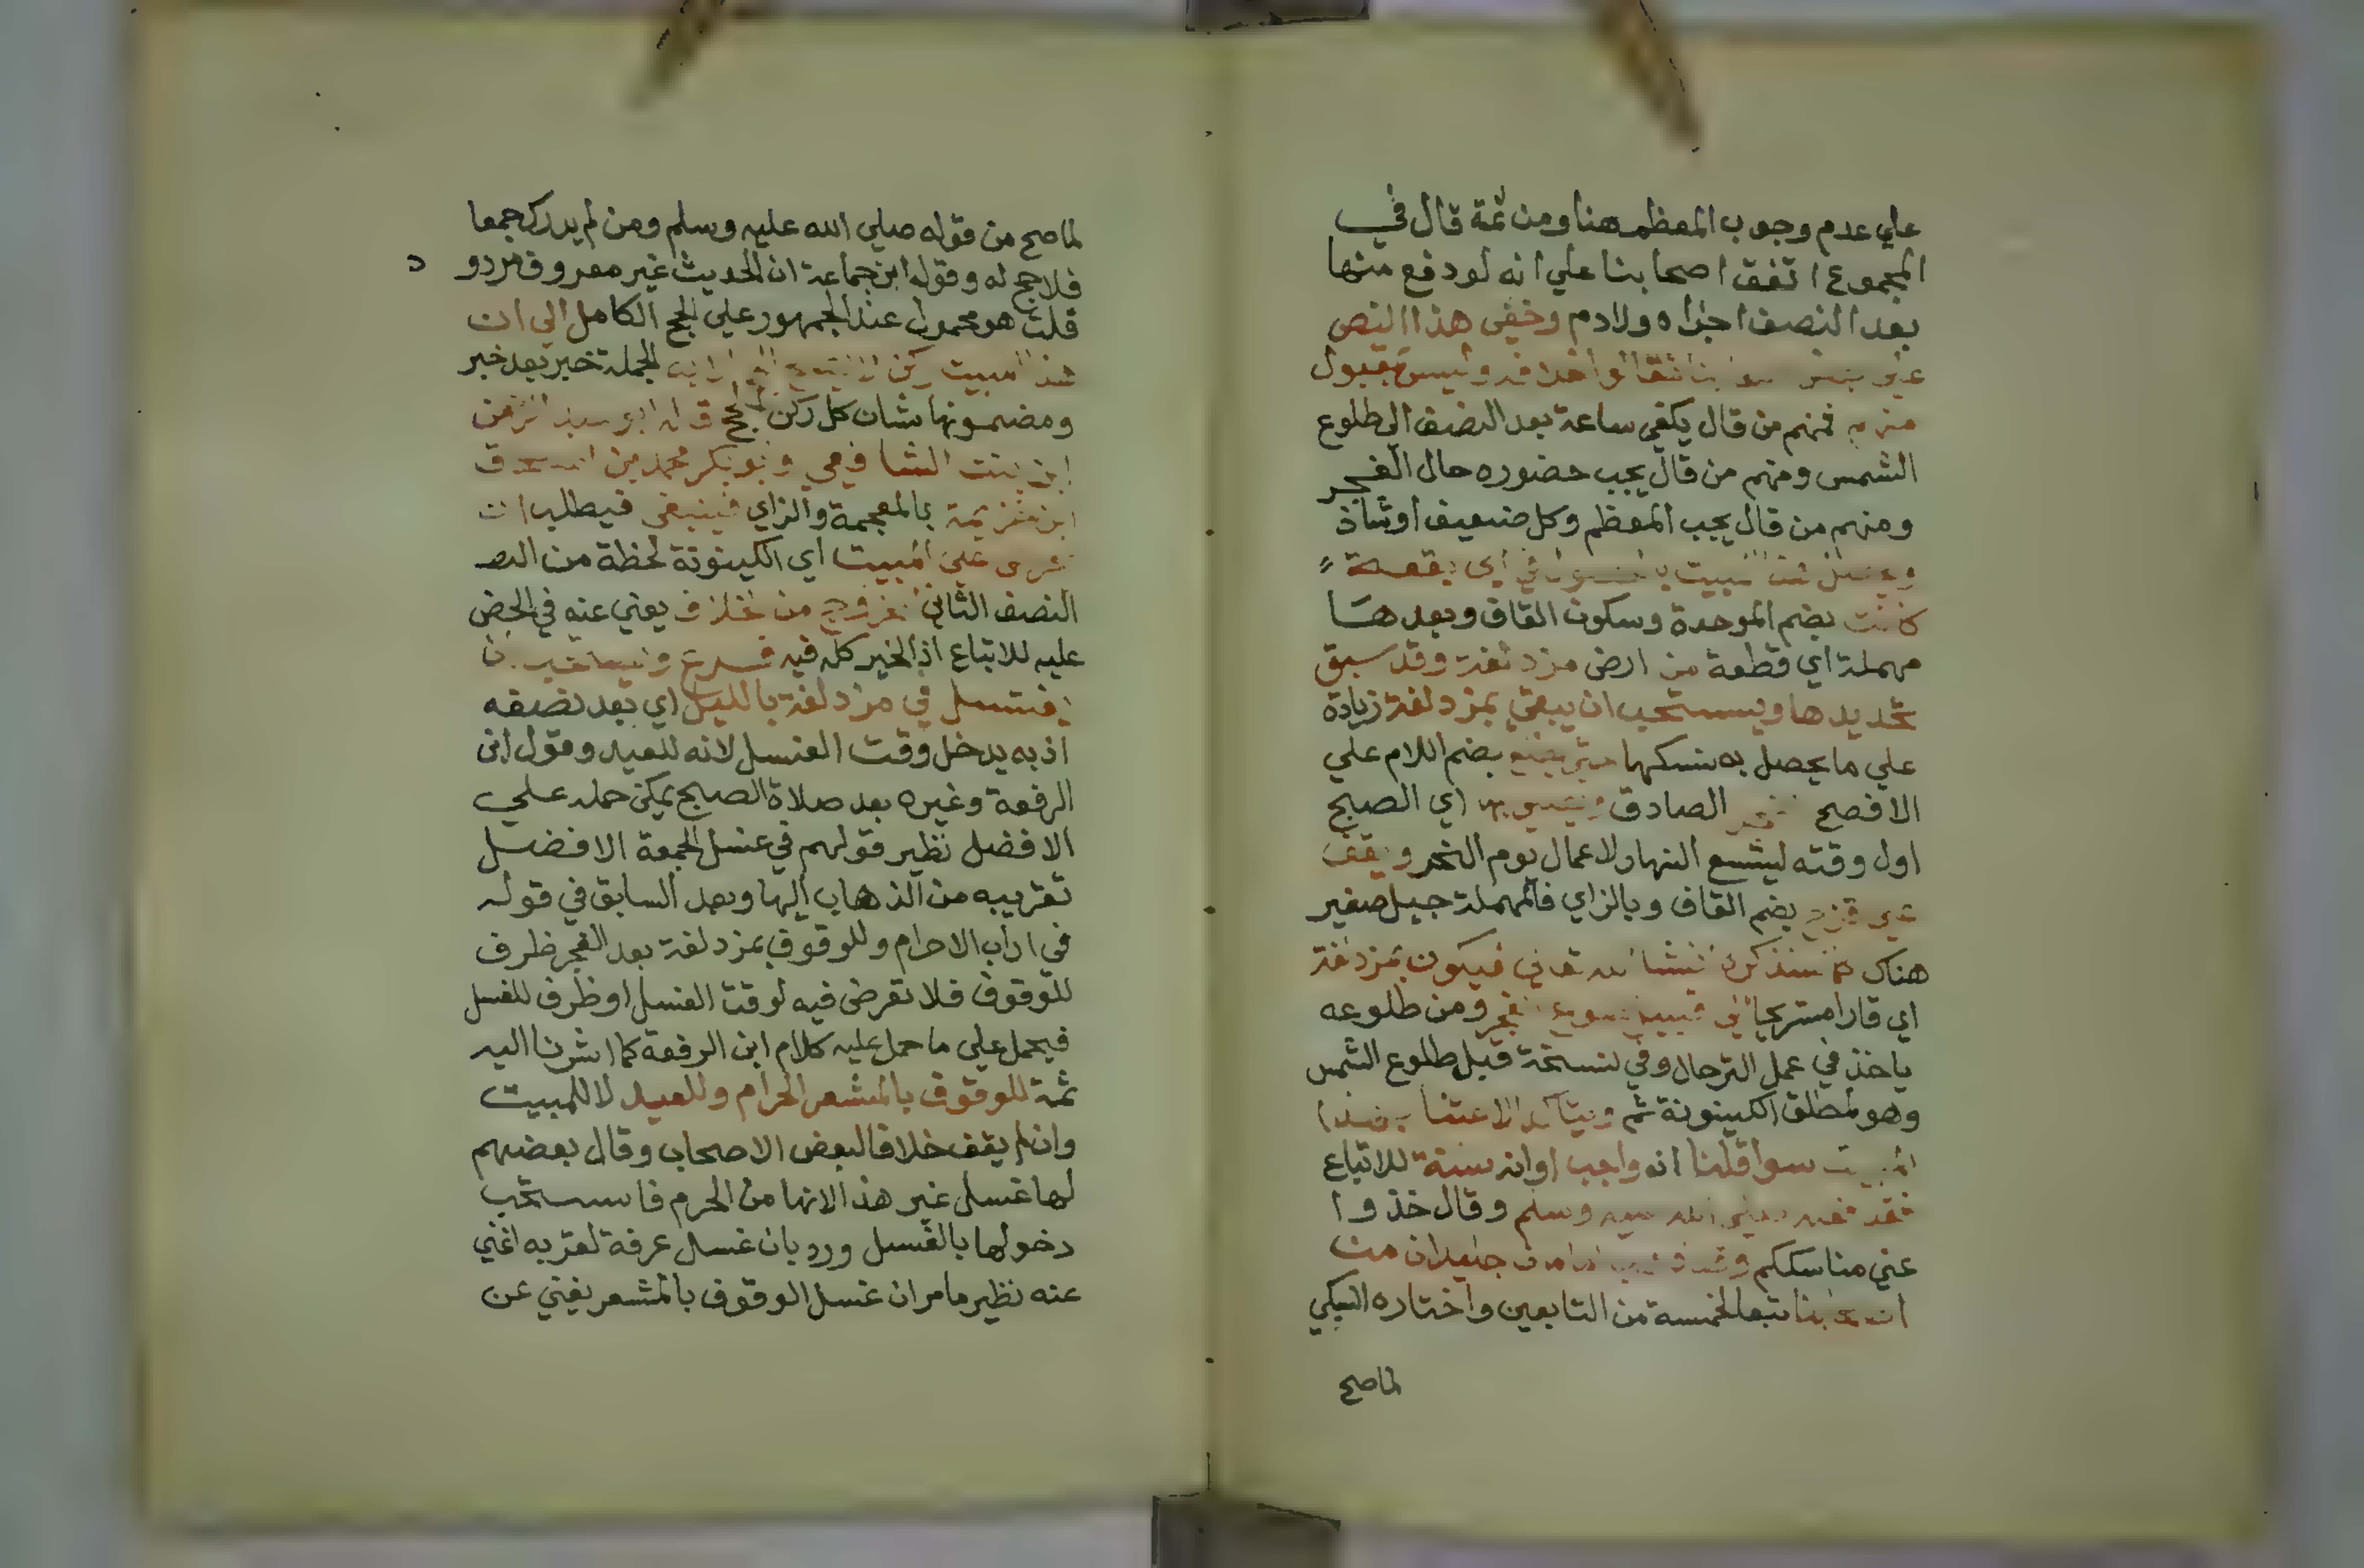 علي عدم وجوب المعظم هنا ومن ثمة قال في
المجموع اتفق اصحابنا علي انه لو دفع منها
بعد النصف اجزاه ولا دم وخفي هذا النص
علي بعض فقالوا خلافه وليس بمقبول
منهم فمنهم من قال يكفي ساعة بعد النصف الي طلوع
الشمس ومنهم من قال يجب حضوره حال الفجر
ومنهم من قال يجب المعظم وكل ضعيف او شاذ
ويحصل هذا المبيت في اي بقعة
كانت بضم الموحدة وسكون القاف وبعدها
مهملة اي قطعة من ارض مزدلفة وقد سبق
تحديدها ويستحب ان يبقي بمزدلفة زيادة
علي ما يحصل به نسكها حتي يطلع بضم اللام علي
الافصح الفجر الصادق اي الصبح
اول وقته ليتسع النهار لاعمال يوم النحر ويقف
علي قزح بضم القاف وبالزاي فالمهملة جبل صغير
هناك كما سنذكره ان شا الله تعالي فيكون بمزدلفة
اي قارا مستريحا الي قبيل طلوع الفجر ومن طلوعه
ياخذ في عمل الترحال وفي نسخة قبل طلوع الشمس
وهو لمطلق الكينونة ثم ويتاكد الاعتنا بهذا
المبيت سوا قلنا انه واجب او انه سنة للاتباع
فقد فعله صلي الله عليه وسلم وقال خذوا
عني مناسككم وقد ذهب امامان جليلان من
اصحابنا تبعا لخمسة من التابعين واختاره السبكي
لما صح
لما صح من قوله صلي الله عليه وسلم ومن لم يدرك جمعا
فلا حج له وقول ابن جماعة ان الحديث غير معروف مردود
قلت هو محمول عند الجمهور علي الحج الكامل الي ان
هذا المبيت ركن الجملة خبر بعد خبر
ومضمونها شان كل ركن للحج قاله ابو عبد الرحمن
ابن بنت الشافعي وابو بكر محمد بن اسحق
ابن خزيمة بالمعجمة والزاي فينبغي فيطلب ان
يحرص علي المبيت اي الكينونة لحظة من النصـ
النصف الثاني للخروج من الخلاف يعني عنه في الحض
عليه للاتباع اذ الخير كله فيه فرع ان
يغتسل في مزدلفة بالليل اي بعد نصفه
اذ به يدخل وقت الغسل لانه للعيد وقول ابن
الرفعة وغيره بعد صلاة الصبح يمكن حمله علي
الافضل نظير قولهم في غسل الجمعة الافضل
تقريبه من الذهاب اليها وبعد السابق في قوله
في اداب الاحرام وللوقوف بمزدلفة بعد الفجر ظرف
للوقوف فلا تعرض فيه لوقت الغسل او ظرف للغسل
فيحمل علي ما حمل عليه كلام ابن الرفعة كما اشرنا اليه
ثمة للوقوف بالمشعر الحرام وللعيد لا للمبيت
وان لم يقف خلافا لبعض الاصحاب وقال بعضهم
لها غسل غير هذا لانها من الحرم فاستحب
دخولها بالغسل ورد بان غسل عرفة لقربه اغني
عنه نظير ما مر ان غسل الوقوف بالمشعر يغني عن